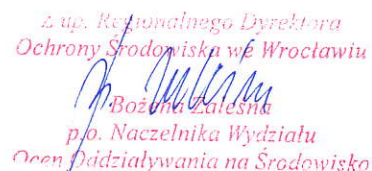 Z up. Regionalnego Dyrektora
Ochrony Środowiska we Wrocławiu
Bożena Zaleśna
p.o. Naczelnika Wydziału
Ocen Oddziaływania na Środowisko